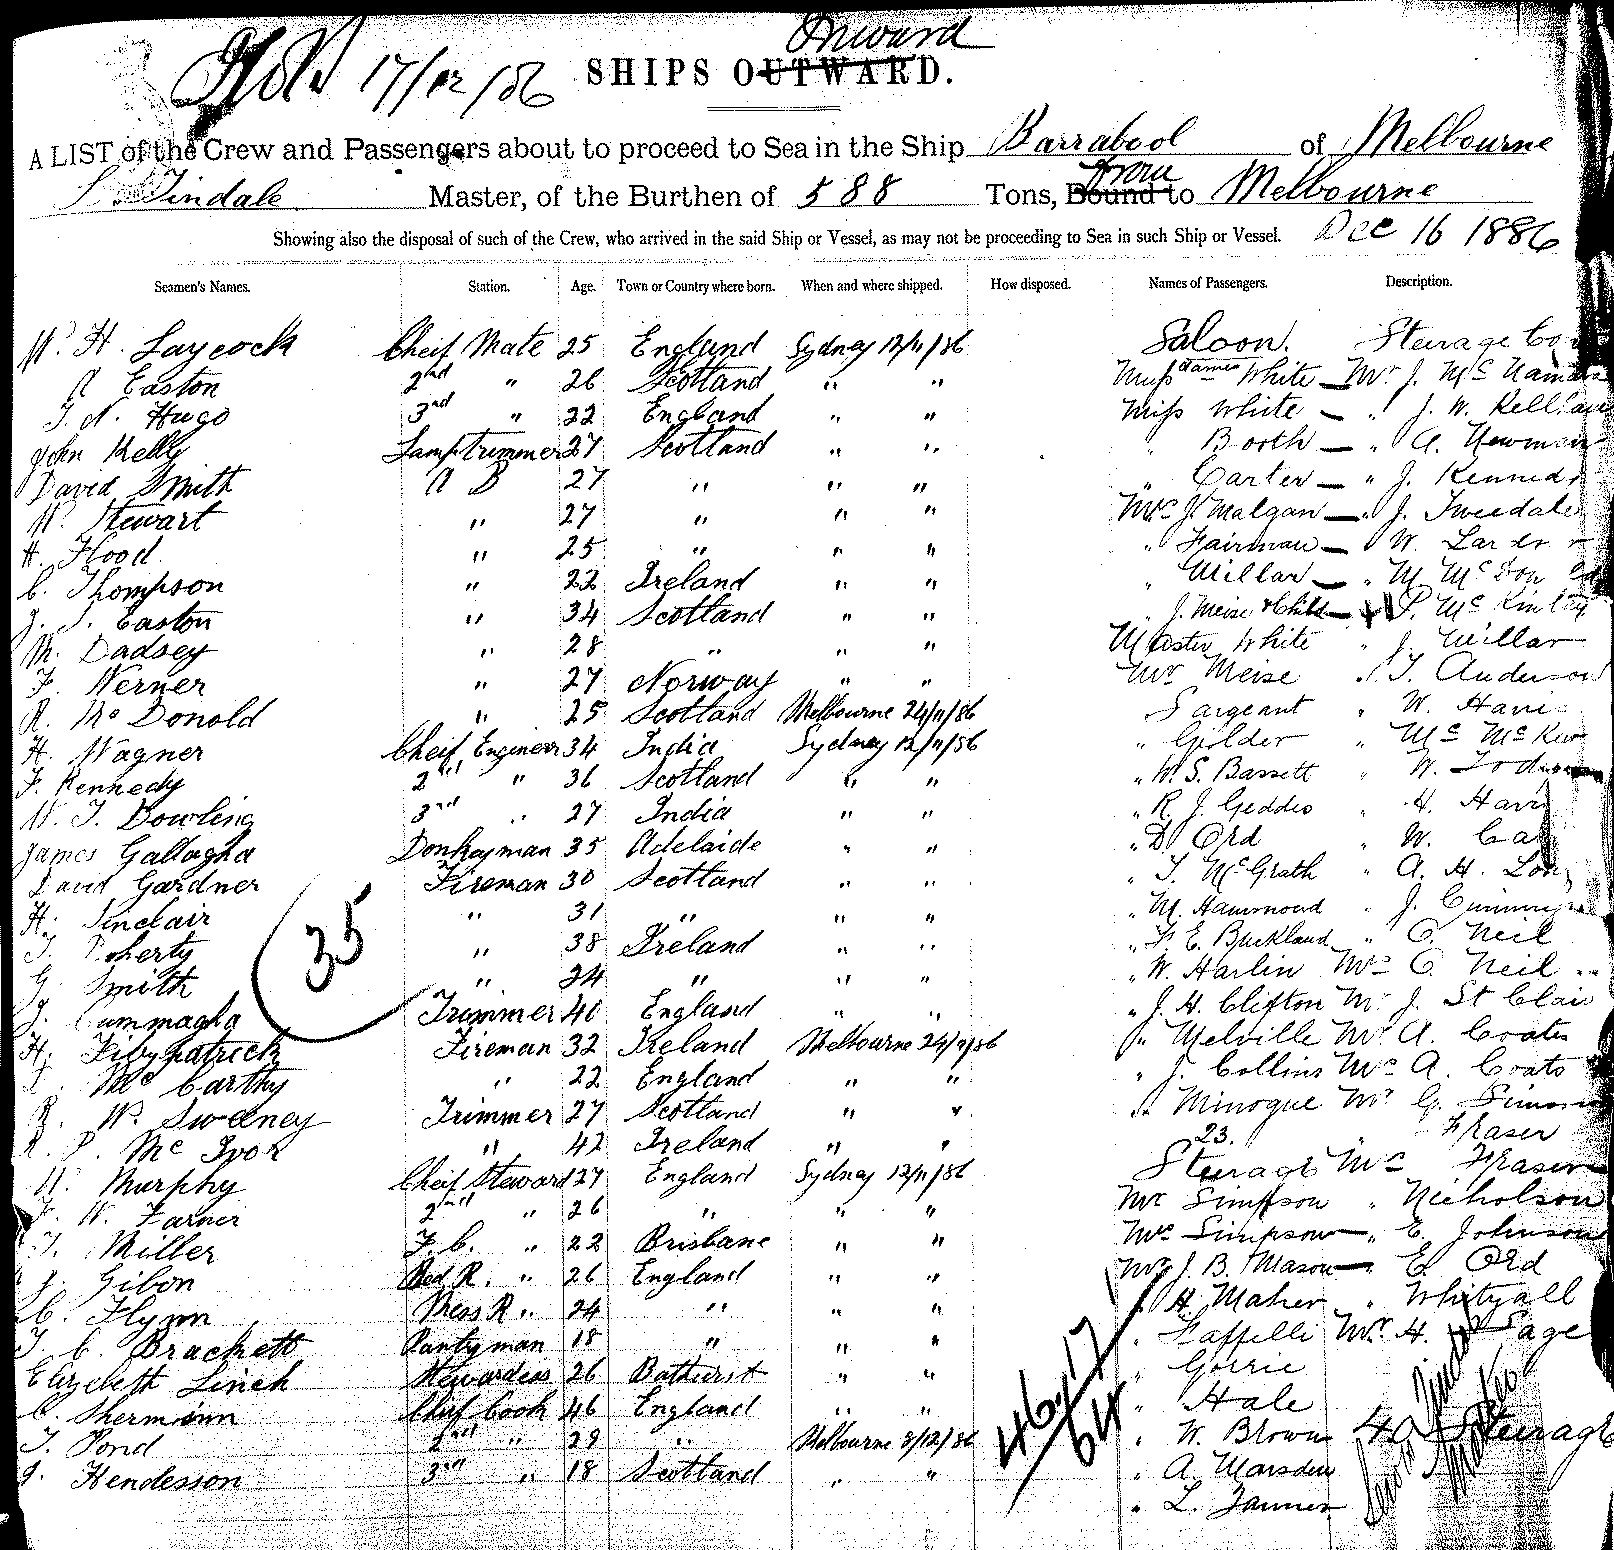 Inward
17/12/86 SHIPS OUTWARD.
A LIST of the Crew and Passengers about to proceed to Sea in the Ship Barrabool of Melbourne
from
Tindale Master, of the Burthen of 588 Tons, Bound to Melbourne
Showing also the disposal of such of the Crew, who arrived in the said Ship or Vessel, as may not be proceeding to Sea in such Ship or Vessel. Dec 16 1886
Seamen's Names. Station. Age. Town or Country where born. When and where shipped. How disposed. Names of Passengers. Description.
W. H. Laycock Cheif Mate 25 England Sydney 12/11/86 Saloon. Steerage
A Easton 2nd " 26 Scotland " " White Mr J.
T. N. Hugo 3rd " 22 England " " Miss White " J. W.
John Kelly Lamptrimmer 27 Scotland " " " Booth " A. Newman
David Smith A B 27 " " " " Carter " J. Kennedy
W. Stewart " 27 " " " Mrs J. Malgan " J. Tweedale
H. Flood " 25 " " " " Fairman " W.
C. Thompson " 22 Ireland " " " Millar " M
J. S. Easton " 34 Scotland " " " J. Meise & Child P. Mc Kinlay
M. Dadsey " 28 " " " Master White " J. Millar
F. Werner " 27 Norway " " Mr Meise " T. Anderson
R. Mc Donold " 25 Scotland Melbourne 24/11/86 Sargeant " W.
H. Wagner Cheif Engineer 34 India Sydney 12/11/86 " Golder " Mc
F. Kennedy 2nd " 36 Scotland " " " W. S. Bassett " W.
W. T. Dowling 3rd " 27 India " " " R. J. Geddes " H.
James Gallagha Donkeyman 35 Adelaide " " " D Ord " W.
David Gardner Fireman 30 Scotland " " " T. McGrath " A. H.
H. Sinclair " 31 " " " " M. Hammond " J.
T. Doherty " 38 Ireland " " " F. E. Buckland " O. Neil
G. Smith " 24 " " " " W. Harlin Mrs O. Neil
35
J. Cummagha Trimmer 40 England " " " J. H. Clifton Mr J. St Clair
H. Fitzpatrick Fireman 32 Ireland Melbourne 24/11/86 " Melville Mr A. Coates
Mc Carthy " 22 England " " " J. Collins Mrs A. Coats
R. W. Sweeney Trimmer 27 Scotland " " " Minogue Mr G.
R. P. Mc Ivor " 42 Ireland " " 23. " Fraser
W. Murphy Cheif Steward 27 England Sydney 12/11/86 Steerage Mrs Fraser
F. W. Farner 2nd " 26 " " " Mr Simpson " Nicholson
T. Miller F. C. " 22 Brisbane " " Mrs Simpson " E. Johnson
J. Gibon Bed R. " 26 England " " Mr J. B. Mason E. Ord
C. Flynn Mess R " 24 " " " " H. Maher " Whityall
T. C. Brackett Pantryman 18 " " " " Mr H. Page
Elizebeth Linch Stewardess 26 Bathurst " " " Gorrie
C. Shermann Chief Cook 46 England " " " Hale
T. Pond 2nd " 29 " Melbourne 8/12/86 " W. Brown 40 Steerage
J. Hendesson 3rd " 18 Scotland " " " A. Marsden
" L. Tanner
46.17
64